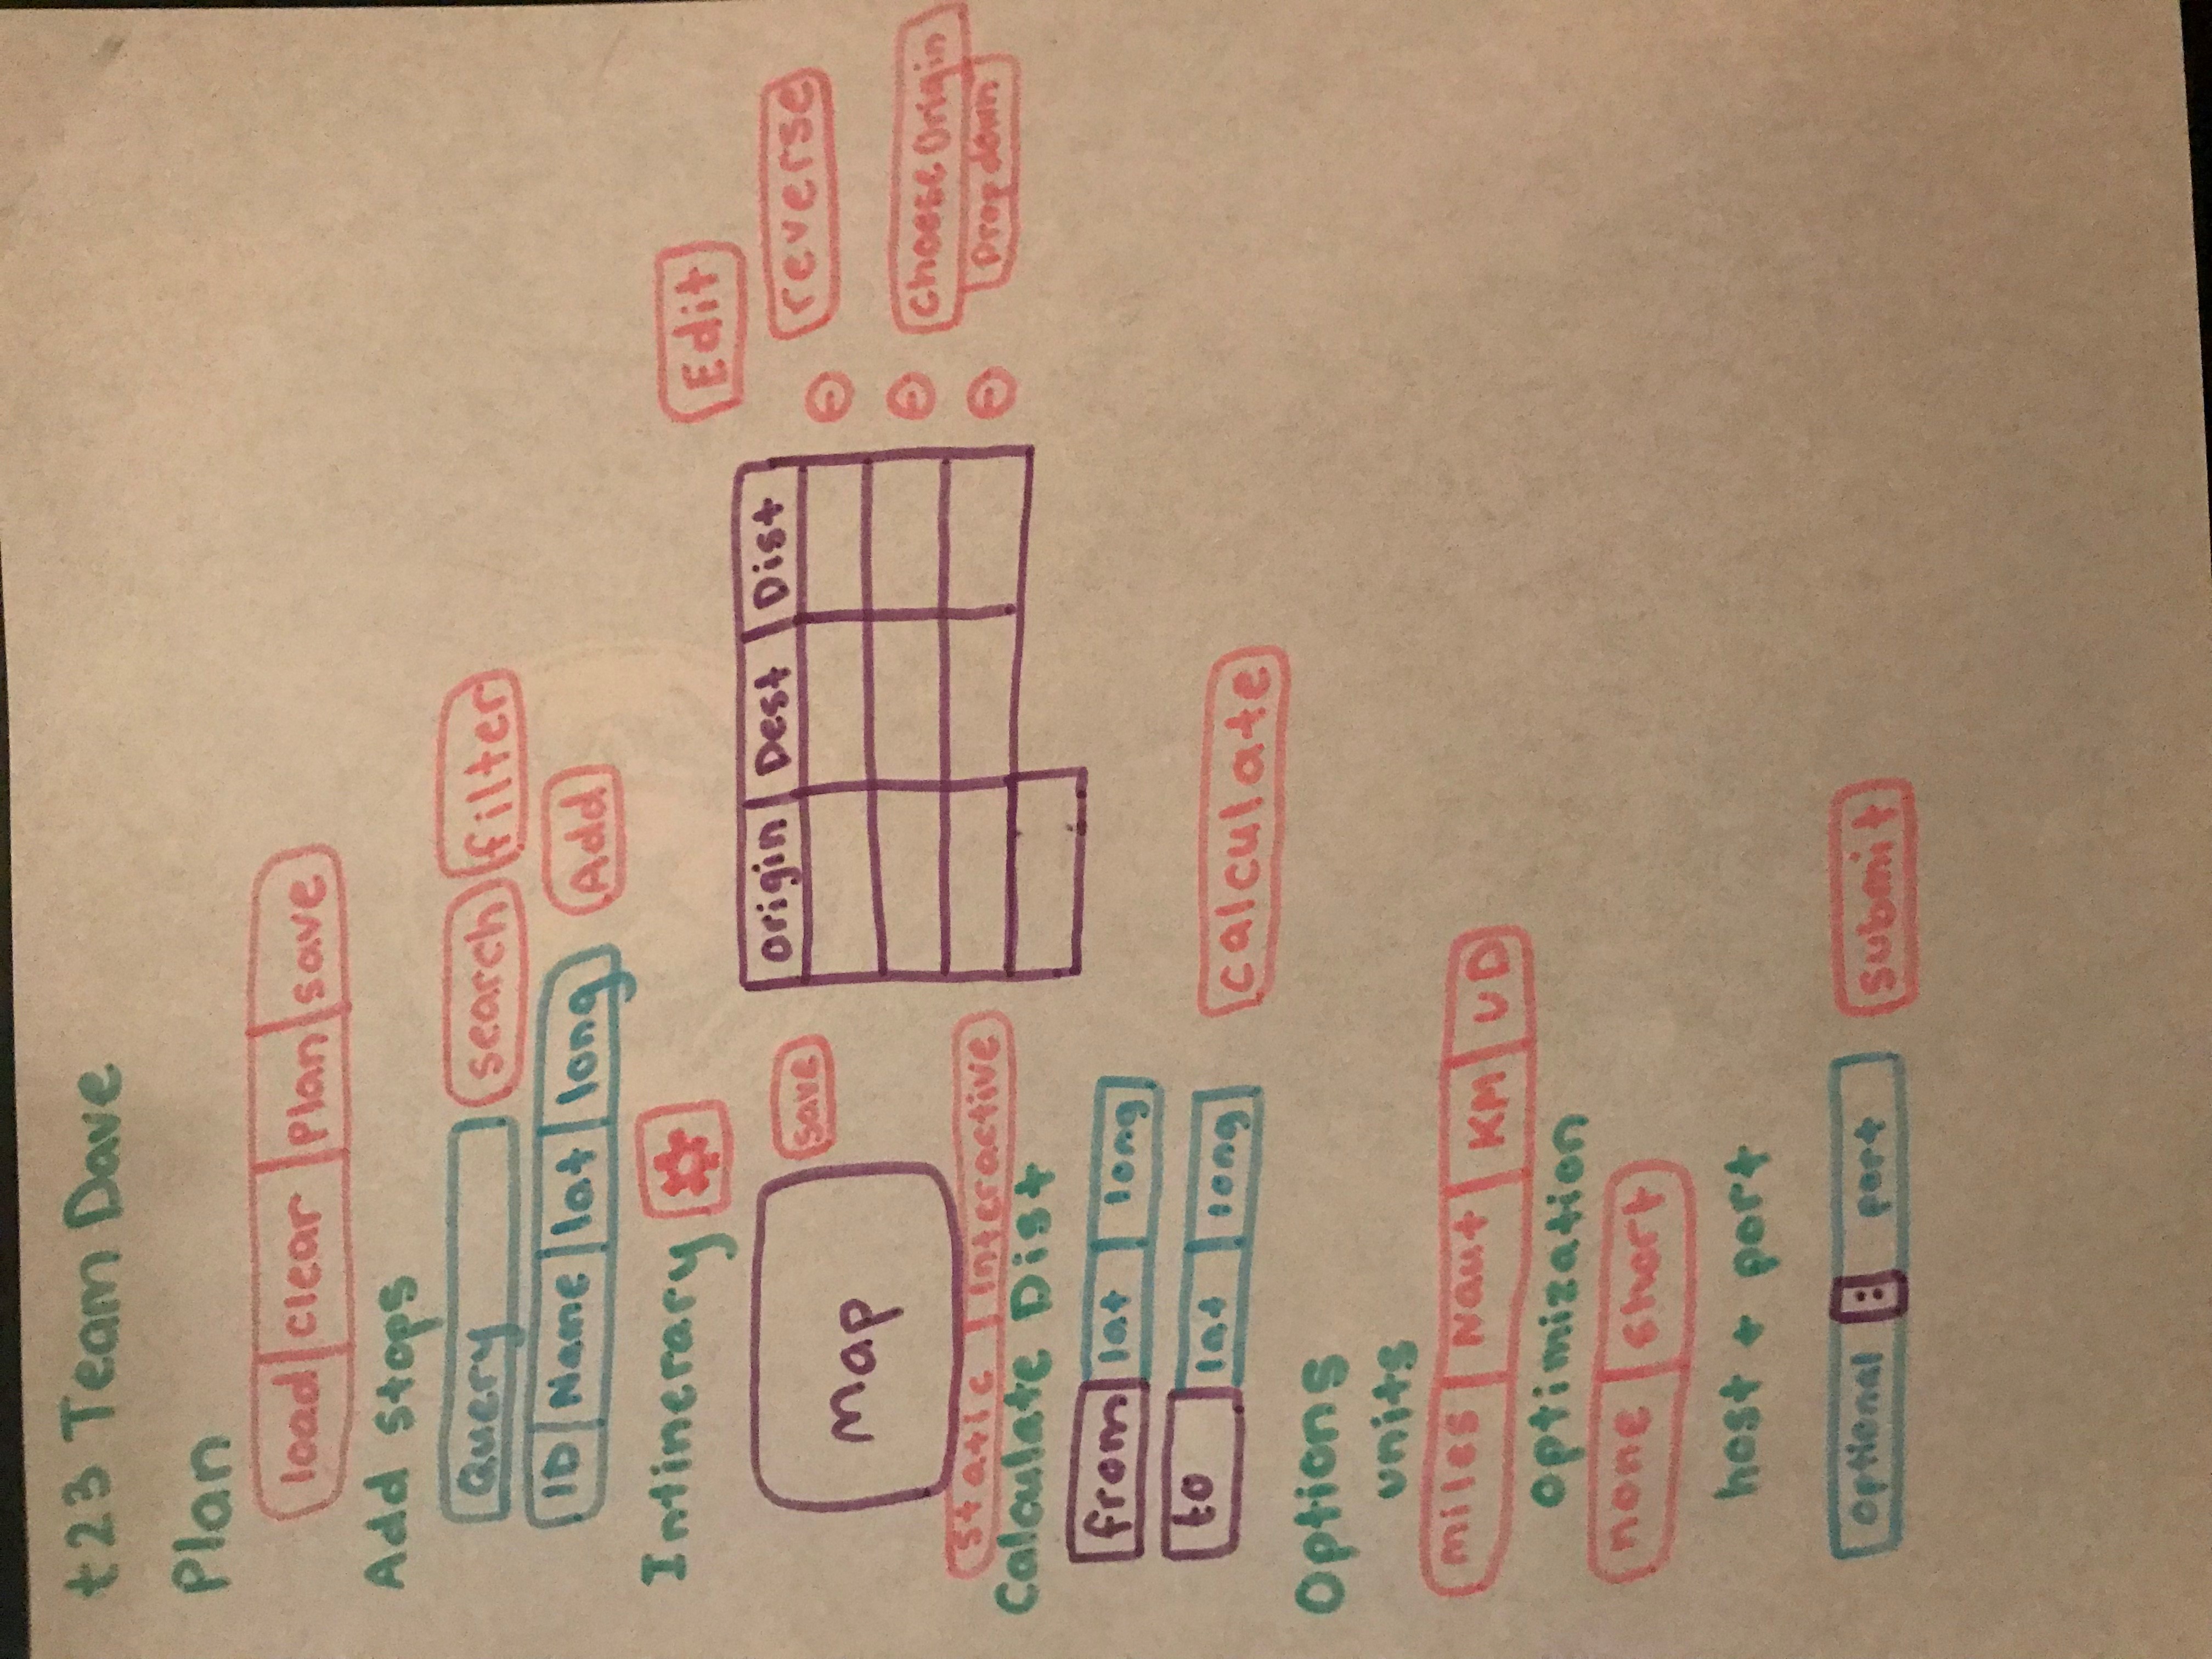 t23 Team Dave
Plan
load clear Plan save
Add stops
Query search filter
ID Name lat long Add
Intinerary Edit
Map save origin Dest Dist reverse
Choose Origin
Drop down
static Interactive
Calculate Dist
from lat long
to lat long calculate
Options
units
miles Naut KM UD
optimization
none short
host + port
optional : port submit